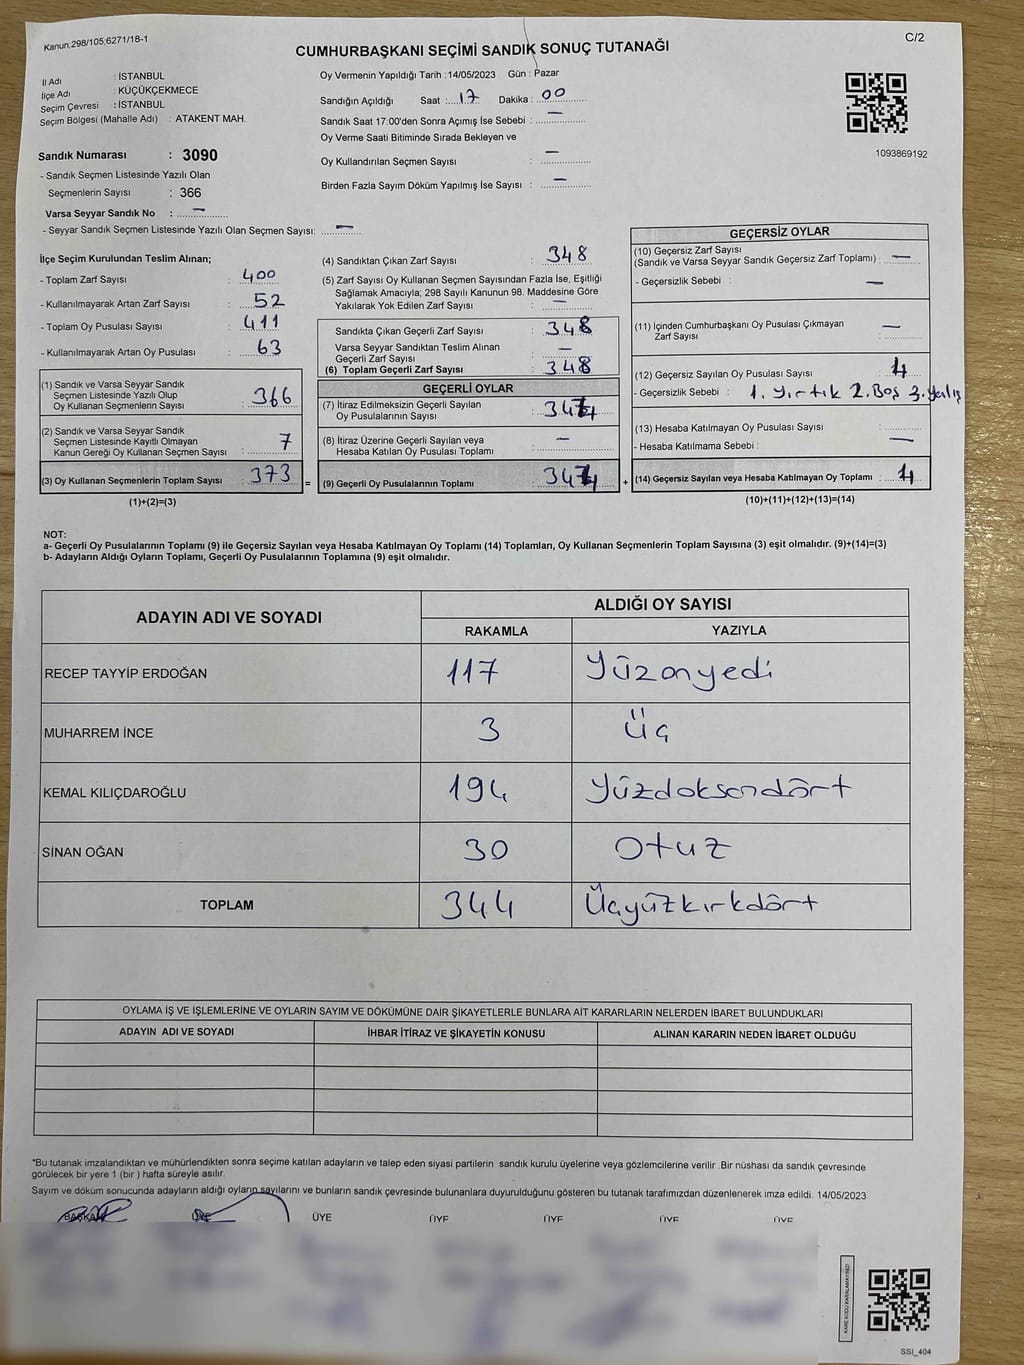 Kanun:298/105;6271/18-1
C/2
CUMHURBAŞKANI SEÇİMİ SANDIK SONUÇ TUTANAĞI
İl Adı : İSTANBUL
İlçe Adı : KÜÇÜKÇEKMECE
Seçim Çevresi : İSTANBUL
Seçim Bölgesi (Mahalle Adı) : ATAKENT MAH.
Sandık Numarası : 3090
- Sandık Seçmen Listesinde Yazılı Olan
Seçmenlerin Sayısı : 366
Varsa Seyyar Sandık No : —
- Seyyar Sandık Seçmen Listesinde Yazılı Olan Seçmen Sayısı: —
Oy Vermenin Yapıldığı Tarih : 14/05/2023 Gün : Pazar
Sandığın Açıldığı Saat : 17 Dakika : 00
Sandık Saat 17:00'den Sonra Açımış İse Sebebi : —
Oy Verme Saati Bitiminde Sırada Bekleyen ve
Oy Kullandırılan Seçmen Sayısı : —
Birden Fazla Sayım Döküm Yapılmış İse Sayısı : —
1093869192
İlçe Seçim Kurulundan Teslim Alınan;
- Toplam Zarf Sayısı : 400
- Kullanılmayarak Artan Zarf Sayısı : 52
- Toplam Oy Pusulası Sayısı : 411
- Kullanılmayarak Artan Oy Pusulası : 63
(1) Sandık ve Varsa Seyyar Sandık
Seçmen Listesinde Yazılı Olup
Oy Kullanan Seçmenlerin Sayısı : 366
(2) Sandık ve Varsa Seyyar Sandık
Seçmen Listesinde Kayıtlı Olmayan
Kanun Gereği Oy Kullanan Seçmen Sayısı : 7
(3) Oy Kullanan Seçmenlerin Toplam Sayısı : 373
(1)+(2)=(3)
=
(4) Sandıktan Çıkan Zarf Sayısı : 348
(5) Zarf Sayısı Oy Kullanan Seçmen Sayısından Fazla İse, Eşitliği
Sağlamak Amacıyla; 298 Sayılı Kanunun 98. Maddesine Göre
Yakılarak Yok Edilen Zarf Sayısı : —
Sandıkta Çıkan Geçerli Zarf Sayısı : 348
Varsa Seyyar Sandıktan Teslim Alınan
Geçerli Zarf Sayısı : —
(6) Toplam Geçerli Zarf Sayısı : 348
GEÇERLİ OYLAR
(7) İtiraz Edilmeksizin Geçerli Sayılan
Oy Pusulalarının Sayısı :
(8) İtiraz Üzerine Geçerli Sayılan veya
Hesaba Katılan Oy Pusulası Toplamı : —
(9) Geçerli Oy Pusulalarının Toplamı :
+
GEÇERSİZ OYLAR
(10) Geçersiz Zarf Sayısı
(Sandık ve Varsa Seyyar Sandık Geçersiz Zarf Toplamı) : —
- Geçersizlik Sebebi : —
(11) İçinden Cumhurbaşkanı Oy Pusulası Çıkmayan
Zarf Sayısı : —
(12) Geçersiz Sayılan Oy Pusulası Sayısı : 4
- Geçersizlik Sebebi : 1. Yırtık 2. Boş 3.
(13) Hesaba Katılmayan Oy Pusulası Sayısı :
- Hesaba Katılmama Sebebi : —
(14) Geçersiz Sayılan veya Hesaba Katılmayan Oy Toplamı : 4
(10)+(11)+(12)+(13)=(14)
NOT:
a- Geçerli Oy Pusulalarının Toplamı (9) ile Geçersiz Sayılan veya Hesaba Katılmayan Oy Toplamı (14) Toplamları, Oy Kullanan Seçmenlerin Toplam Sayısına (3) eşit olmalıdır. (9)+(14)=(3)
b- Adayların Aldığı Oyların Toplamı, Geçerli Oy Pusulalarının Toplamına (9) eşit olmalıdır.
ADAYIN ADI VE SOYADI
ALDIĞI OY SAYISI
RAKAMLA YAZIYLA
RECEP TAYYİP ERDOĞAN 117 Yüzonyedi
MUHARREM İNCE 3 Üç
KEMAL KILIÇDAROĞLU 194 Yüzdoksandört
SİNAN OĞAN 30 Otuz
TOPLAM 344 Üçyüzkırkdört
OYLAMA İŞ VE İŞLEMLERİNE VE OYLARIN SAYIM VE DÖKÜMÜNE DAİR ŞİKAYETLERLE BUNLARA AİT KARARLARIN NELERDEN İBARET BULUNDUKLARI
ADAYIN ADI VE SOYADI İHBAR İTİRAZ VE ŞİKAYETİN KONUSU ALINAN KARARIN NEDEN İBARET OLDUĞU
*Bu tutanak imzalandıktan ve mühürlendikten sonra seçime katılan adayların ve talep eden siyasi partilerin sandık kurulu üyelerine veya gözlemcilerine verilir .Bir nüshası da sandık çevresinde
görülecek bir yere 1 (bir ) hafta süreyle asılır.
Sayım ve döküm sonucunda adayların aldığı oyların sayılarını ve bunların sandık çevresinde bulunanlara duyurulduğunu gösteren bu tutanak tarafımızdan düzenlenerek imza edildi. 14/05/2023
BAŞKAN ÜYE ÜYE ÜYE ÜYE ÜYE ÜYE
SSI_404